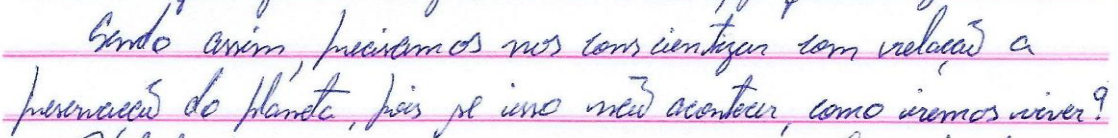 Sendo assim, precisamos nos conscientizar com relação a
preservação do planeta, pois se isso não acontecer, como iremos viver?